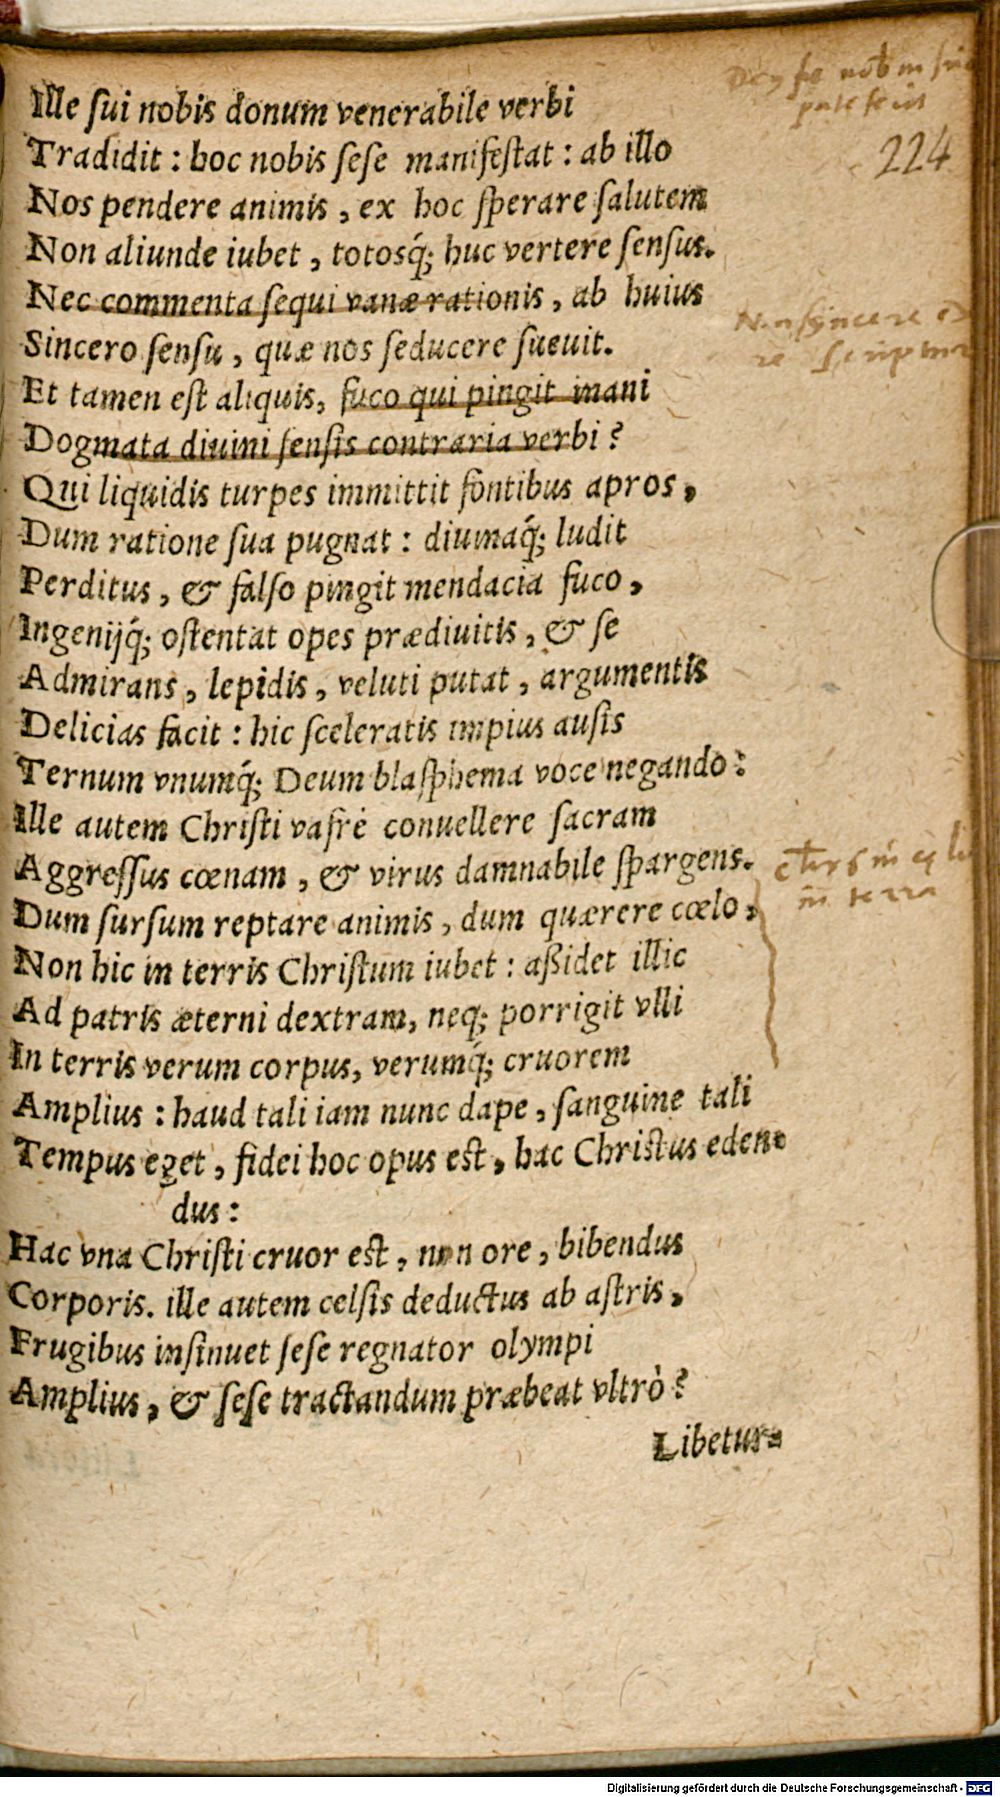 Ille sui nobis donum venerabile verbi
Tradidit : hoc nobis sese manifestat : ab illo
224
Nos pendere animis , ex hoc sperare salutem
Non aliunde iubet , totosq́; huc vertere sensus.
Nec commenta sequi vanæ rationis , ab huius
Sincero sensu , quæ nos seducere sueuit.
Et tamen est aliquis, fuco qui pingit inani
Dogmata diuini sensis contraria verbi ?
Qui liquidis turpes immittit fontibus apros ,
Dum ratione sua pugnat : diuinaq́; ludit
Perditus , & falso pingit mendacia fuco ,
Ingenijq́; ostentat opes prædiuitis , & se
Admirans , lepidis , veluti putat , argumentis
Delicias facit : hic sceleratis impius ausis
Ternum vnumq́; Deum blasphema voce negando :
Ille autem Christi vafrè conuellere sacram
Aggressus cœnam , & virus damnabile spargens.
in terra
Dum sursum reptare animis , dum quærere cœlo ,
Non hic in terris Christum iubet : aßidet illic
Ad patris æterni dextram, neq; porrigit vlli
In terris verum corpus, verumq́; cruorem
Amplius : haud tali iam nunc dape , sanguine tali
Tempus eget , fidei hoc opus est , hac Christus eden-
dus :
Hac vna Christi cruor est , non ore , bibendus
Corporis. ille autem celsis deductus ab astris ,
Frugibus insinuet sese regnator olympi
Amplius , & sese tractandum præbeat vltrò ?
Libetur-
Digitalisierung gefördert durch die Deutsche Forschungsgemeinschaft - DFG